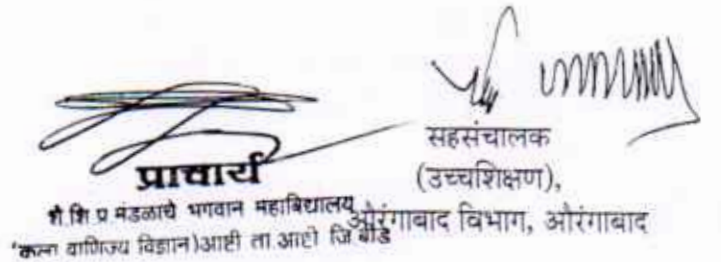 प्राचार्य
शै.शि प्र मंडळाचे भगवान महाबिद्यालय
(कला वाणिज्य विज्ञान)आष्टी ता आष्टी जि बीड
सहसंचालक
(उच्चशिक्षण),
औरंगाबाद विभाग, औरंगाबाद